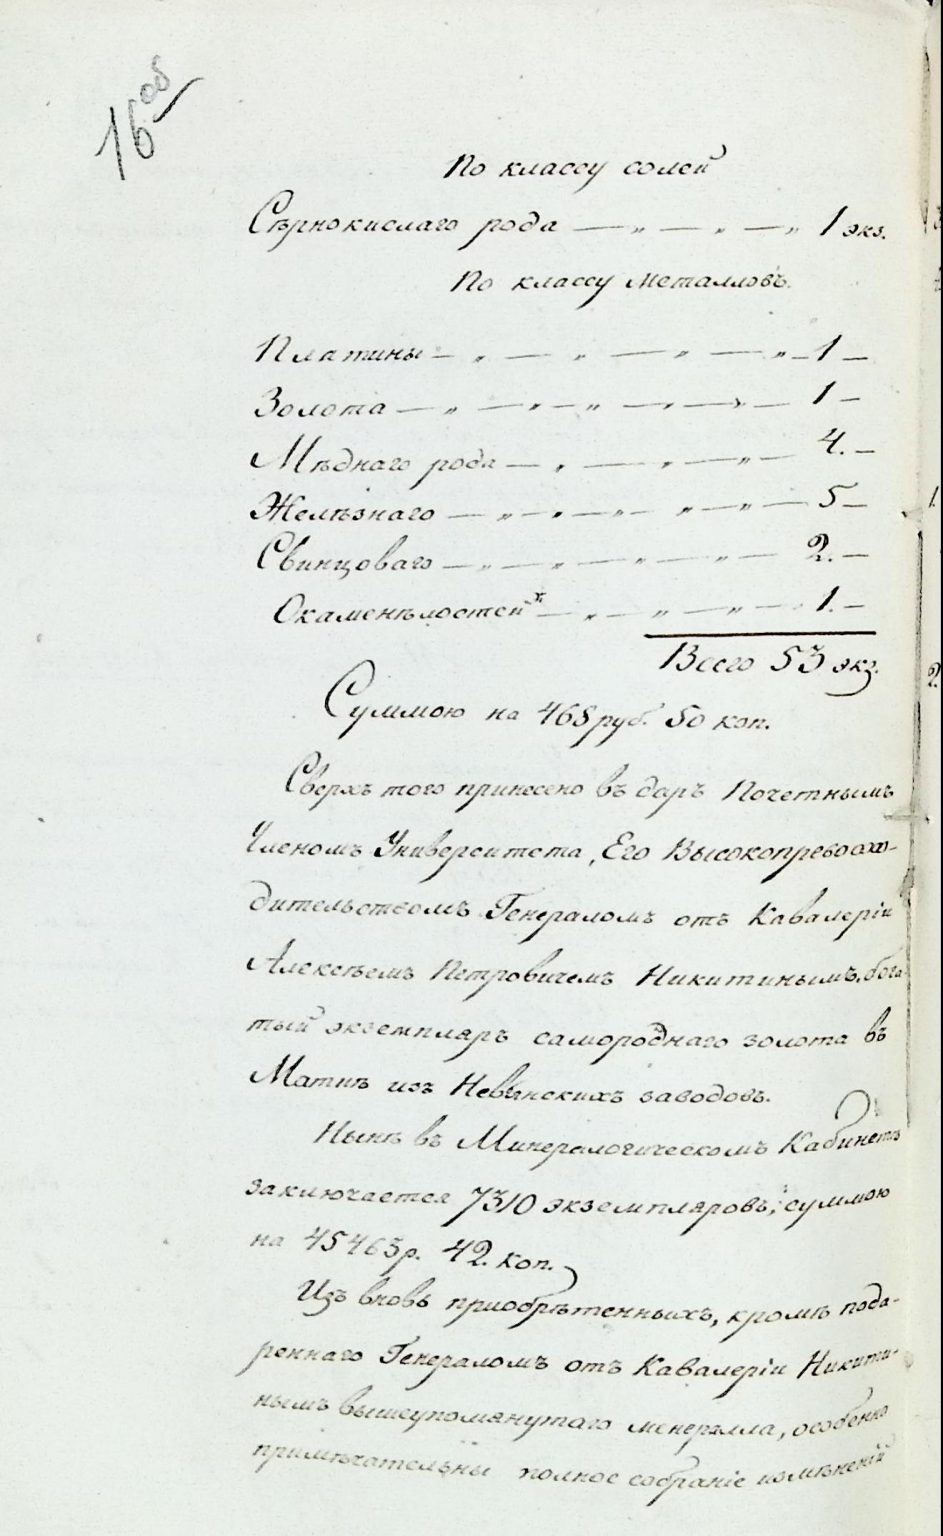 16 об
По классу солей
Сѣрнокислаго рода — „ — „ — „ 1 экз.
По классу металловъ.
Платины — „ — „ — „ — „ — 1 —
Золота — „ — „ — „ — „ — „ — 1 —
Мѣднаго рода — „ — „ — „ — 4. —
Желѣзнаго — „ — „ — „ — „ — „ — 5 —
Свинцоваго — „ — „ — „ — „ — „ — 2. —
Окаменѣлостей — „ — „ — „ — 1. —
Всего 53 экз.
Суммою на 468 руб. 50 коп.
Сверхъ того принесено въ даръ Почетнымъ
Членомъ Университета, Его Высокопревосхо-
дительствомъ Генераломъ отъ Кавалеріи
Алексѣемъ Петровичемъ Никитинымъ, бога-
тый экземпляръ самороднаго золота въ
Маткѣ изъ Невьянскихъ заводовъ.
Нынѣ въ Минералогическомъ Кабинетѣ
заключается 7310 экземпляровъ, суммою
на 45463 р. 42. коп.
Изъ вновь приобрѣтенныхъ, кромѣ пода-
реннаго Генераломъ отъ Кавалеріи Никити-
нымъ вышеупомянутаго менералла, особенно
примѣчательны полное собраніе измѣненій